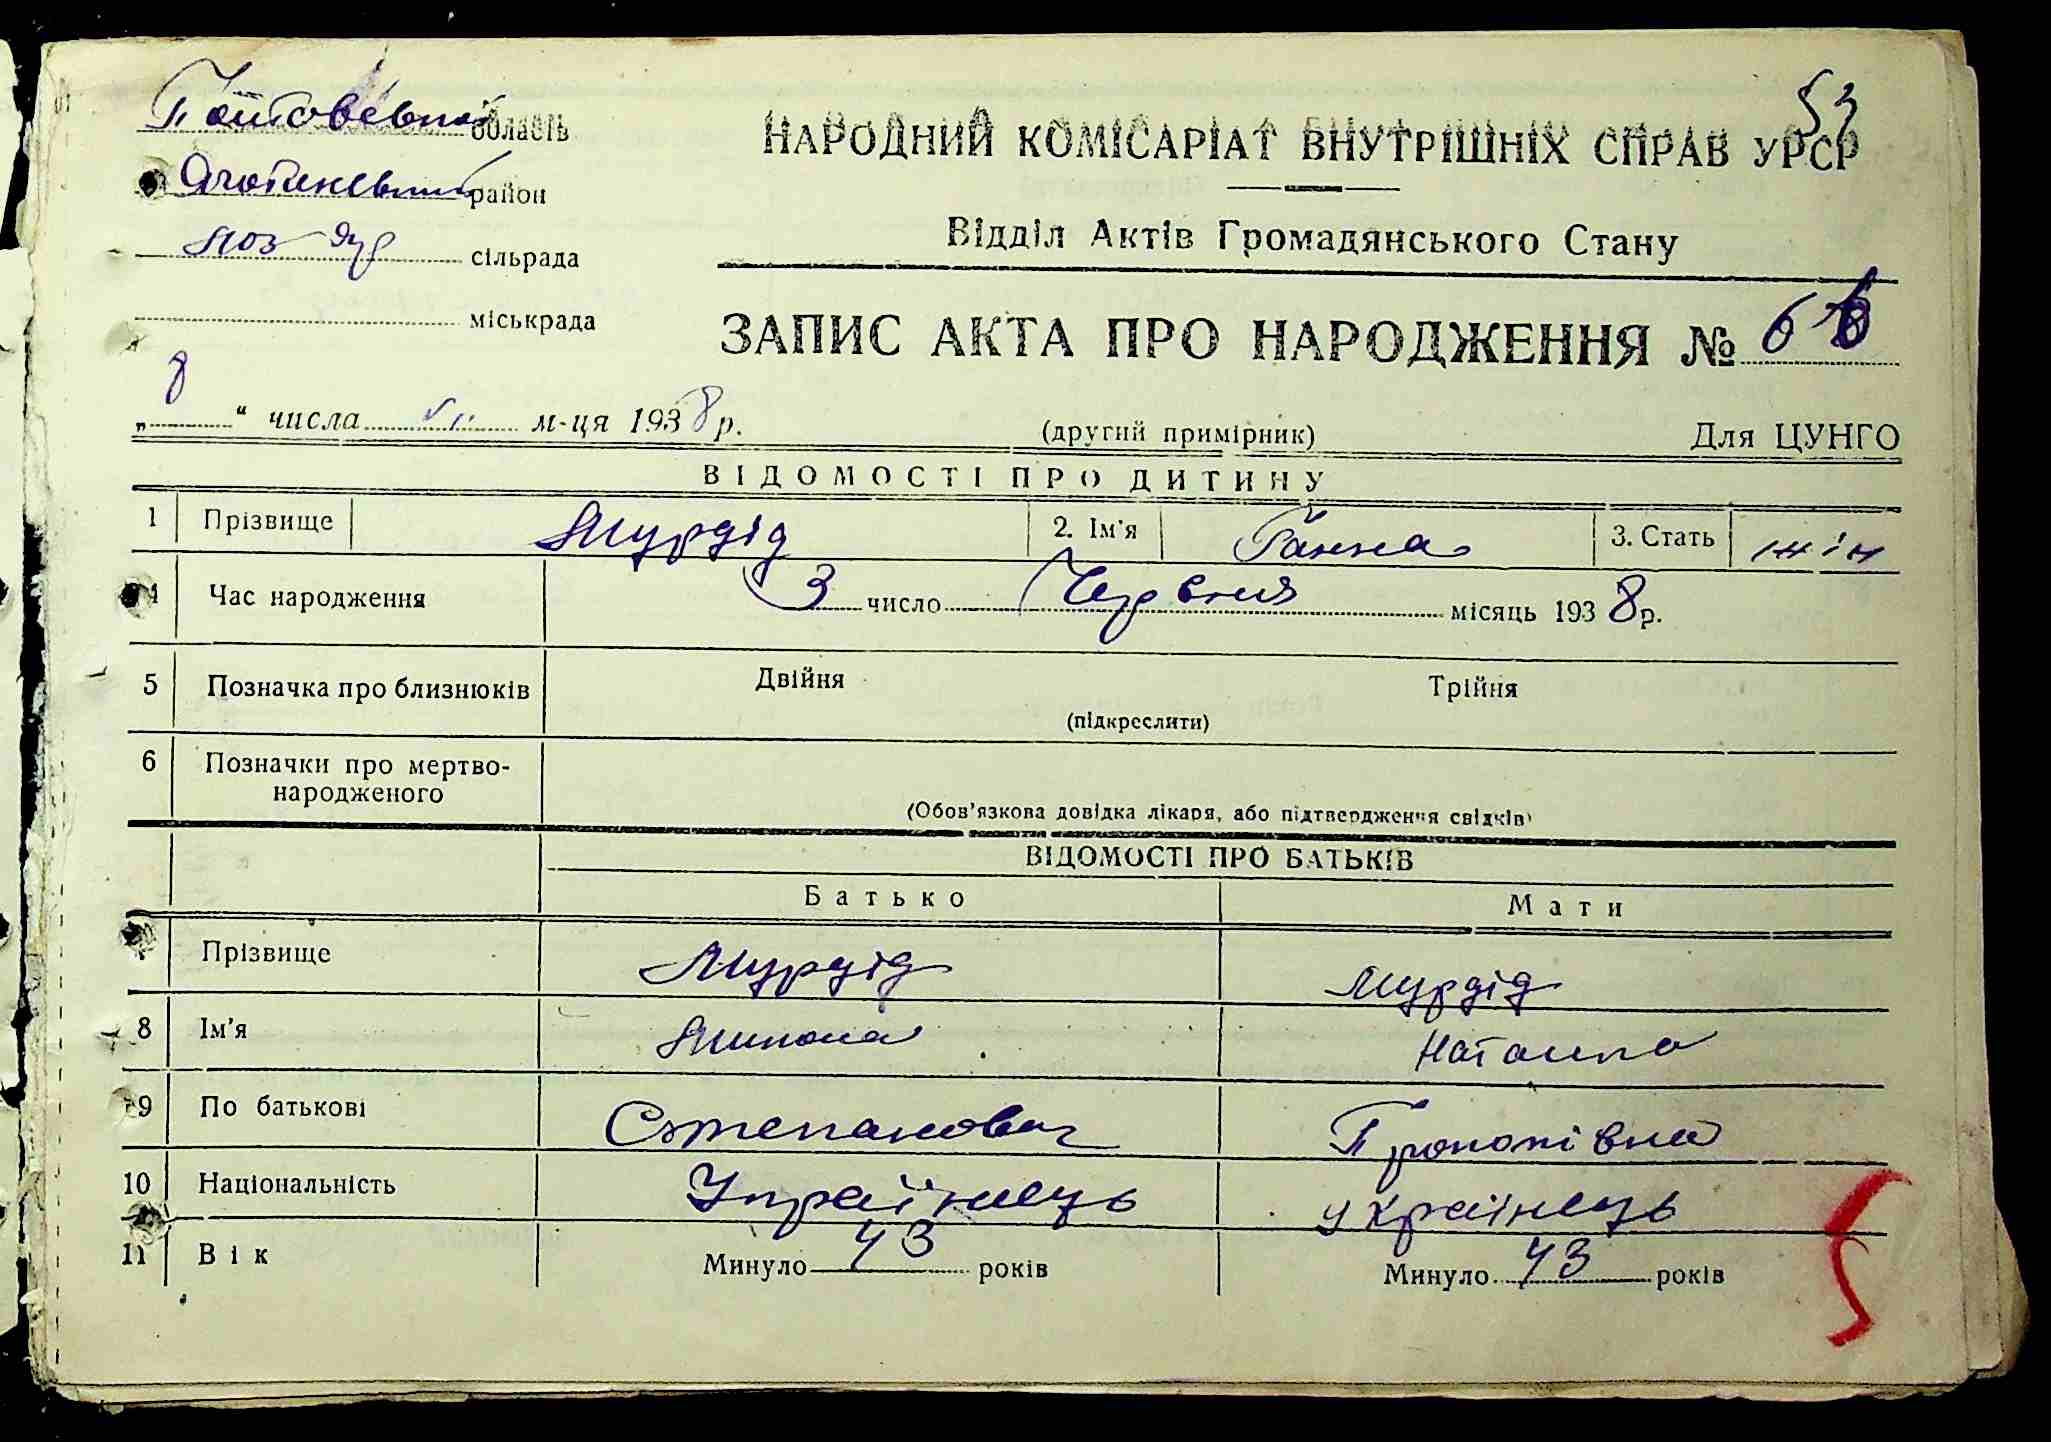 53
Полтовський область
НАРОДНИЙ КОМІСАРІАТ ВНУТРІШНІХ СПРАВ УРСР
район
Відділ Актів Громадянського Стану
Лоз Яр сільрада
міськрада
ЗАПИС АКТА ПРО НАРОДЖЕННЯ № 6
„8“ числа VI м-ця 1938 р.
(другий примірник)
Для ЦУНГО
ВІДОМОСТІ ПРО ДИТИНУ
1 Прізвище Мурдід 2. Ім'я Ганна 3. Стать жін
4 Час народження 3 число Червня місяць 1938 р.
5 Позначка про близнюків Двійня Трійня
(підкреслити)
6 Позначки про мертво-
народженого
(Обов'язкова довідка лікаря, або підтвердження свідків)
ВІДОМОСТІ ПРО БАТЬКІВ
Батько Мати
Прізвище Мурдід Мурдід
8 Ім'я Микола Наталка
9 По батькові Степанович Прокопівна
10 Національність Українець Українець
11 Вік Минуло 43 років Минуло 43 років